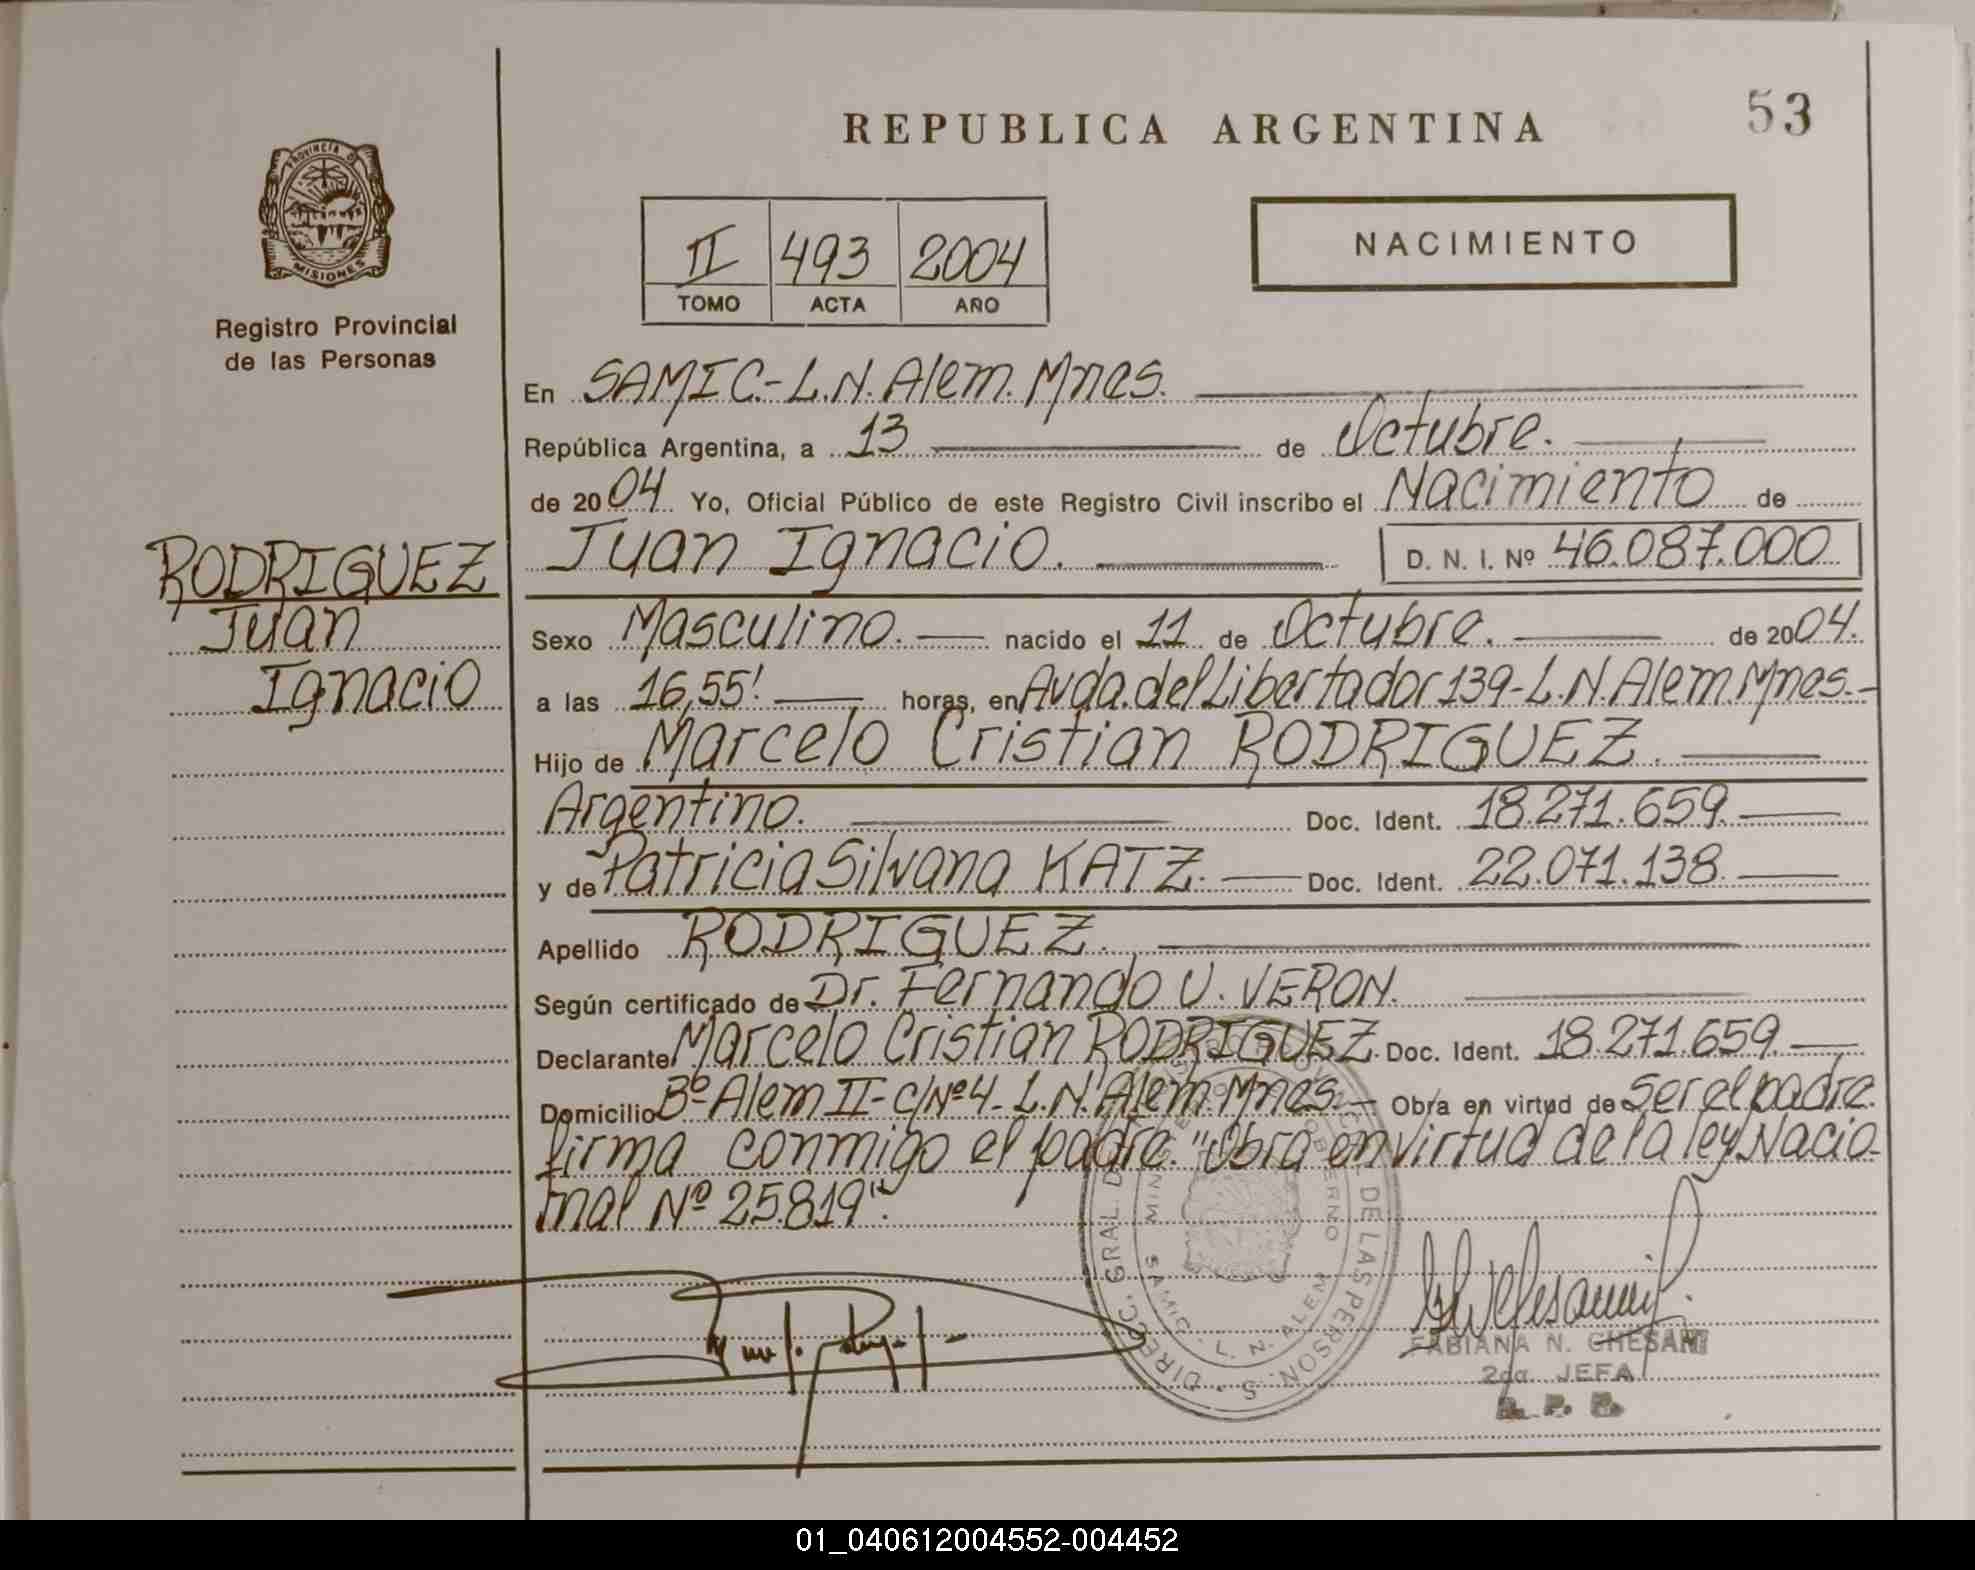 REPUBLICA ARGENTINA
53
PROVINCIA DE
MISIONES
Registro Provincial
de las Personas
II 493 2004
TOMO ACTA AÑO
NACIMIENTO
En SAMIC.- L.N. Alem. Mnes.
República Argentina, a 13 de Octubre.
de 2004 Yo, Oficial Público de este Registro Civil inscribo el Nacimiento de
Juan Ignacio. D. N. I. Nº 46.087.000
RODRIGUEZ
Juan
Ignacio
Sexo Masculino. nacido el 11 de Octubre. de 2004.
a las 16,55' horas, en Avda. del Libertador 139-L.N. Alem. Mnes.-
Hijo de Marcelo Cristian RODRIGUEZ.
Argentino. Doc. Ident. 18.271.659.
y de Patricia Silvana KATZ. Doc. Ident. 22.071.138.
Apellido RODRIGUEZ.
Según certificado de Dr. Fernando U. VERON.
Declarante Marcelo Cristian RODRIGUEZ. Doc. Ident. 18.271.659.
Domicilio Bº Alem II- c/Nº4- L.N. Alem. Mnes.- Obra en virtud de ser el padre.
firma conmigo el padre. "Obra en virtud de la ley Nacio-
nal Nº 25.819".
DIRECC. GRAL. DE LAS PERSONAS
GOBERNO
SAMIC - L. N. ALEM
FABIANA N. GHESANI
2da. JEFA
R. P. P.
01_040612004552-004452